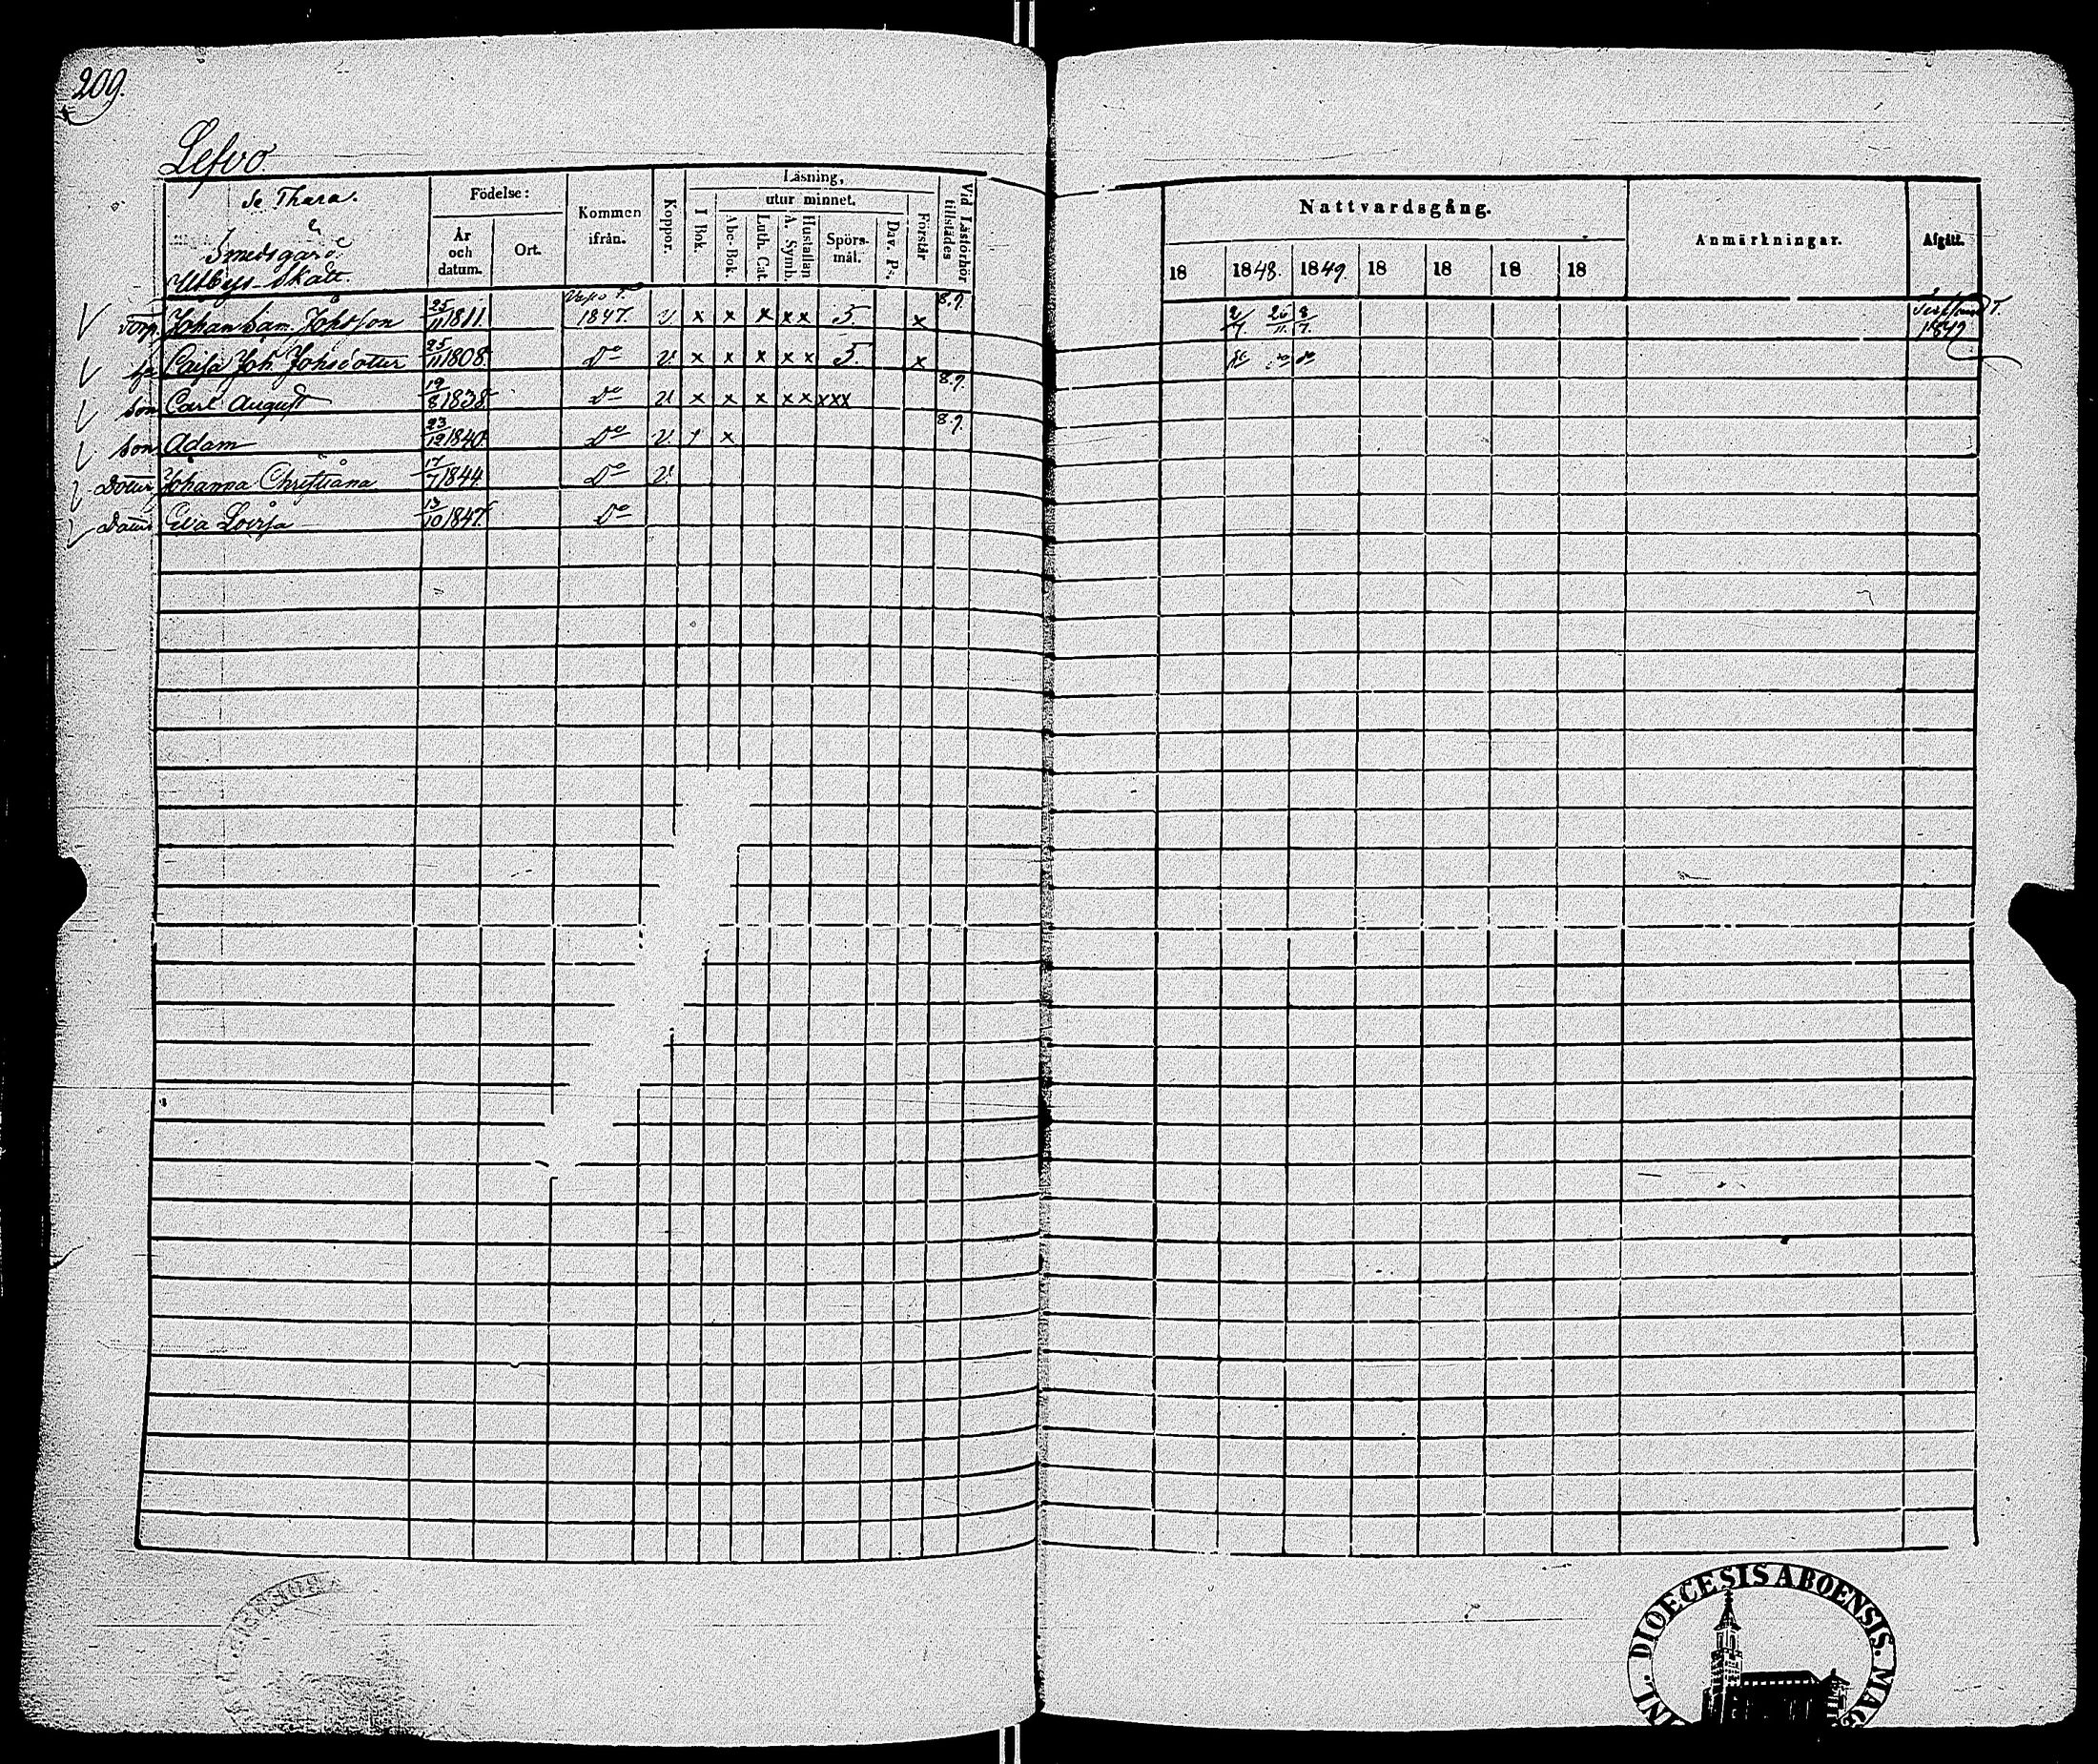 209.
Lefvo
Se Thara.
Smedsgård
Utbys Skatt.
Födelse: År och datum. Ort. Kommen ifrån. Koppor. Läsning, I Bok. utur minnet. Abc-Bok. Luth. Cat. A. Symb. Hustaflan Spörsmål. Dav. Ps. Förstår Vid Läsförhör tillstädes
Nattvardsgång. Anmärkningar. Afgått.
18 1848. 1849. 18 18 18 18
Torp. Johan Sam. Johsson 25/11 1811. 1847. v. x x x x x 5. x 8.9. 2/7. 26/11. 8/7. 1849
Caisa Joh. Johsdotter 25/11 1808. Do v. x x x x x 5. x do do do
Son Carl August 19/8 1838. Do v x x x x x xxx 8.9.
Son Adam 23/12 1840. Do v. x 8.9.
Dotter Johanna Christiana 17/7 1844 Do v.
Dotter Eva Lovisa 13/10 1847. Do
DIOECESIS ABOENSIS. MAG